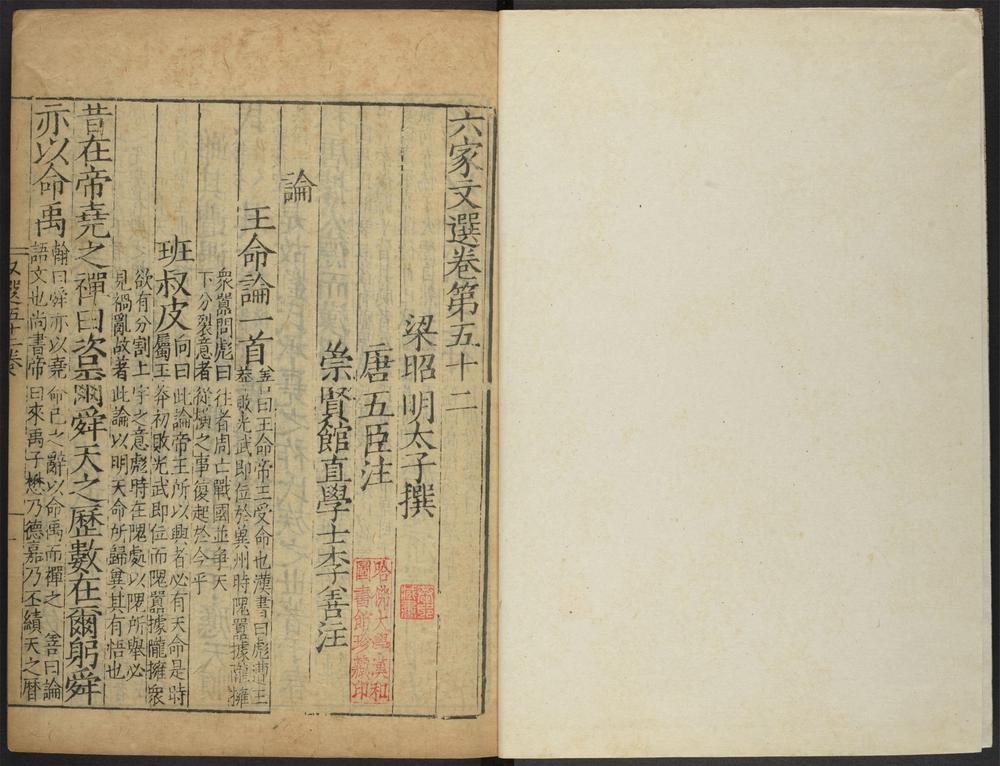 六家文選卷第五十二
梁昭明太子撰
唐五臣注
崇賢館直學士李善注
論
王命論一首
善曰王命帝王受命也漢書曰彪遭王
莽敗光武即位於冀州時隗囂據隴擁
衆囂問彪曰往者周亡戰國並爭天
下分裂意者從横之事復起於今乎
班叔皮
向曰此論帝王所以興者必有天命是時
屬王莽初敗光武即位而隗囂據隴擁衆
欲有分割上宇之意彪時在隗處以隗所舉必
見禍亂故著此論以明天命所歸兾其有悟也
昔在帝堯之禪曰咨爾舜天之歷數在爾躬舜
亦以命禹
翰曰舜亦以堯命已之辭以命禹而禪之善曰論
語文也尚書帝曰來禹予懋乃德嘉乃丕績天之曆
文選五十二卷
哈佛大學漢和
圖書館珍藏印